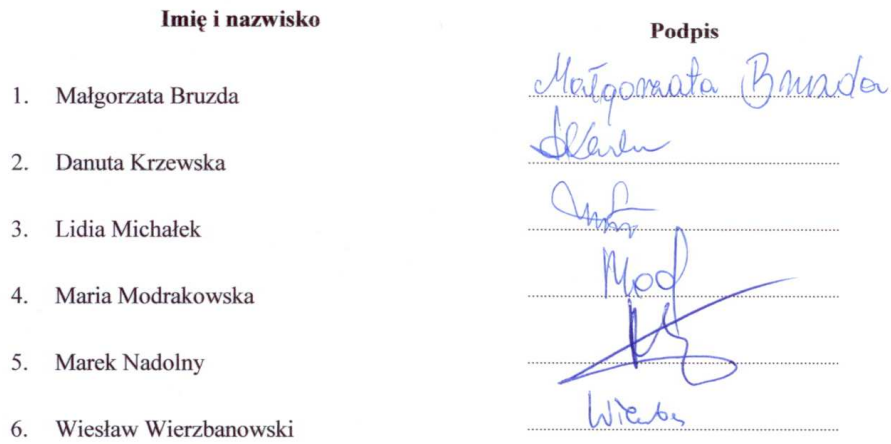 Imię i nazwisko Podpis
1. Małgorzata Bruzda Małgorzata Bruzda
2. Danuta Krzewska
3. Lidia Michałek
4. Maria Modrakowska Mod
5. Marek Nadolny
6. Wiesław Wierzbanowski